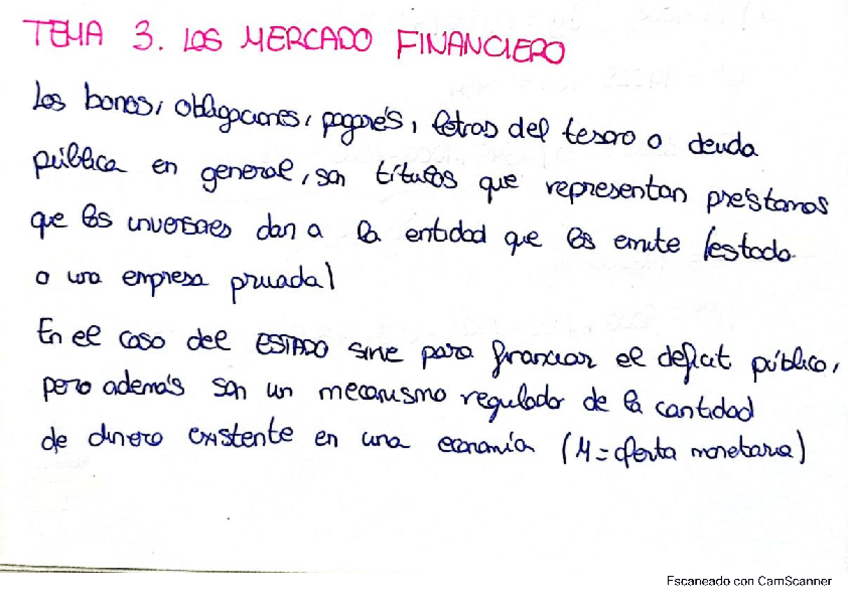 TEMA 3. LOS MERCADO FINANCIERO
Los bonos, obligaciones, pagarés, letras del tesoro o deuda
pública en general, son títulos que representan préstamos
que los inversores dan a la entidad que los emite (estado
o una empresa privada)
En el caso del ESTADO sirve para financiar el deficit público,
pero además son un mecanismo regulador de la cantidad
de dinero existente en una economía (M = oferta monetaria)
Escaneado con CamScanner